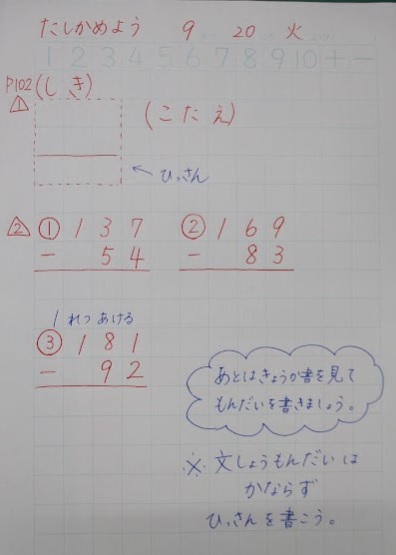 たしかめよう 9 20 火
1 2 3 4 5 6 7 8 9 10 + −
P102 (しき)
△1
(こたえ)
← ひっさん
△2 ① 137 ② 169
− 54 − 83
1れつあける
③ 181
− 92
あとはきょうか書を見て
もんだいを書きましょう。
※文しょうもんだいは
かならず
ひっさんを書こう。